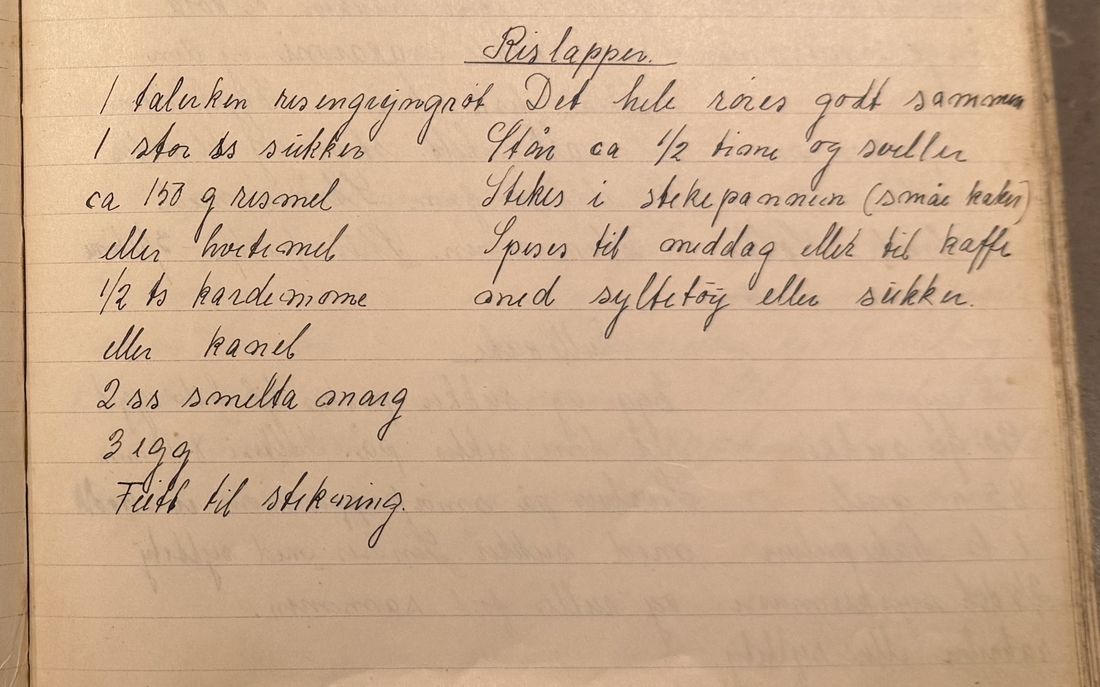 Rislapper.
1 talerken risengryngrøt
1 stor ss sukker
ca 150 g rismel
eller hvetemel
1/2 ts kardemome
eller kanel
2 ss smelta marg
3 egg
Feitt til stekning.
Det hele røres godt sammen
Står ca 1/2 time og sveller
Stekes i stekepannen (små kaker)
Spises til middag eller til kaffe
med syltetøy eller sukker.